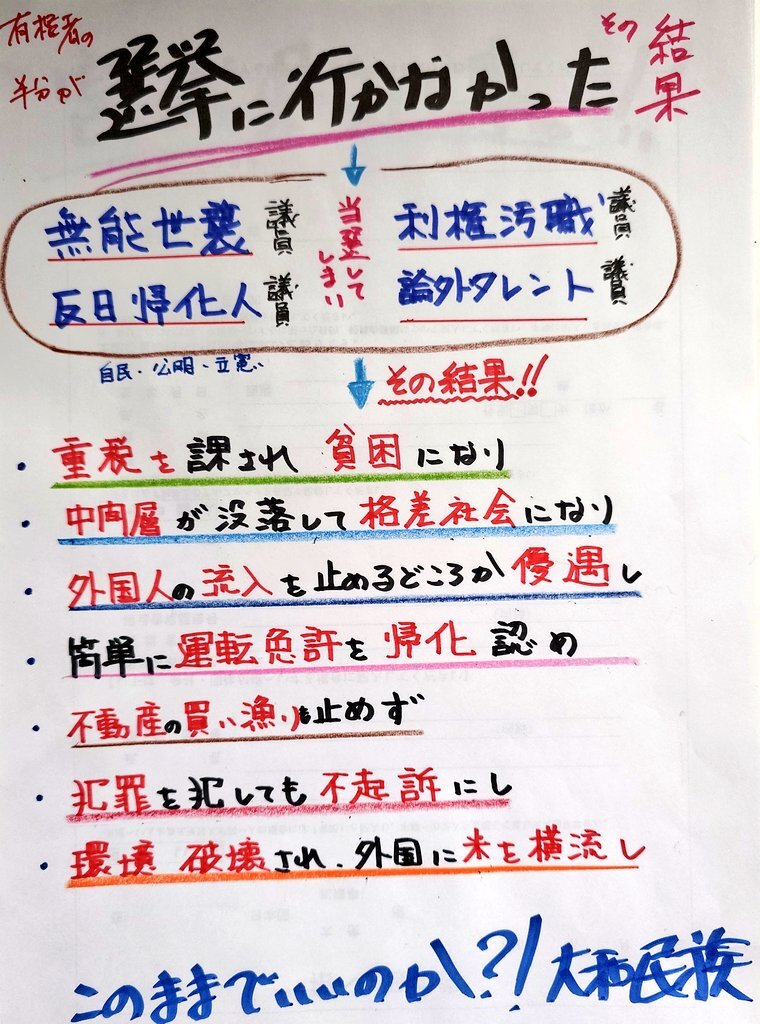 有権者の
半分が
選挙に行かなかった
その
結果
無能世襲議員
当選してしまい
利権汚職議員
反日帰化人議員
論外タレント議員
自民・公明・立憲
その結果!!
・重税を課され貧困になり
・中間層が没落して格差社会になり
・外国人の流入を止めるどころか優遇し
・簡単に運転免許を帰化認め
・不動産の買い漁りも止めず
・犯罪を犯しても不起訴にし
・環境破壊され、外国に米を横流し
このままでいいのか?!大和民族